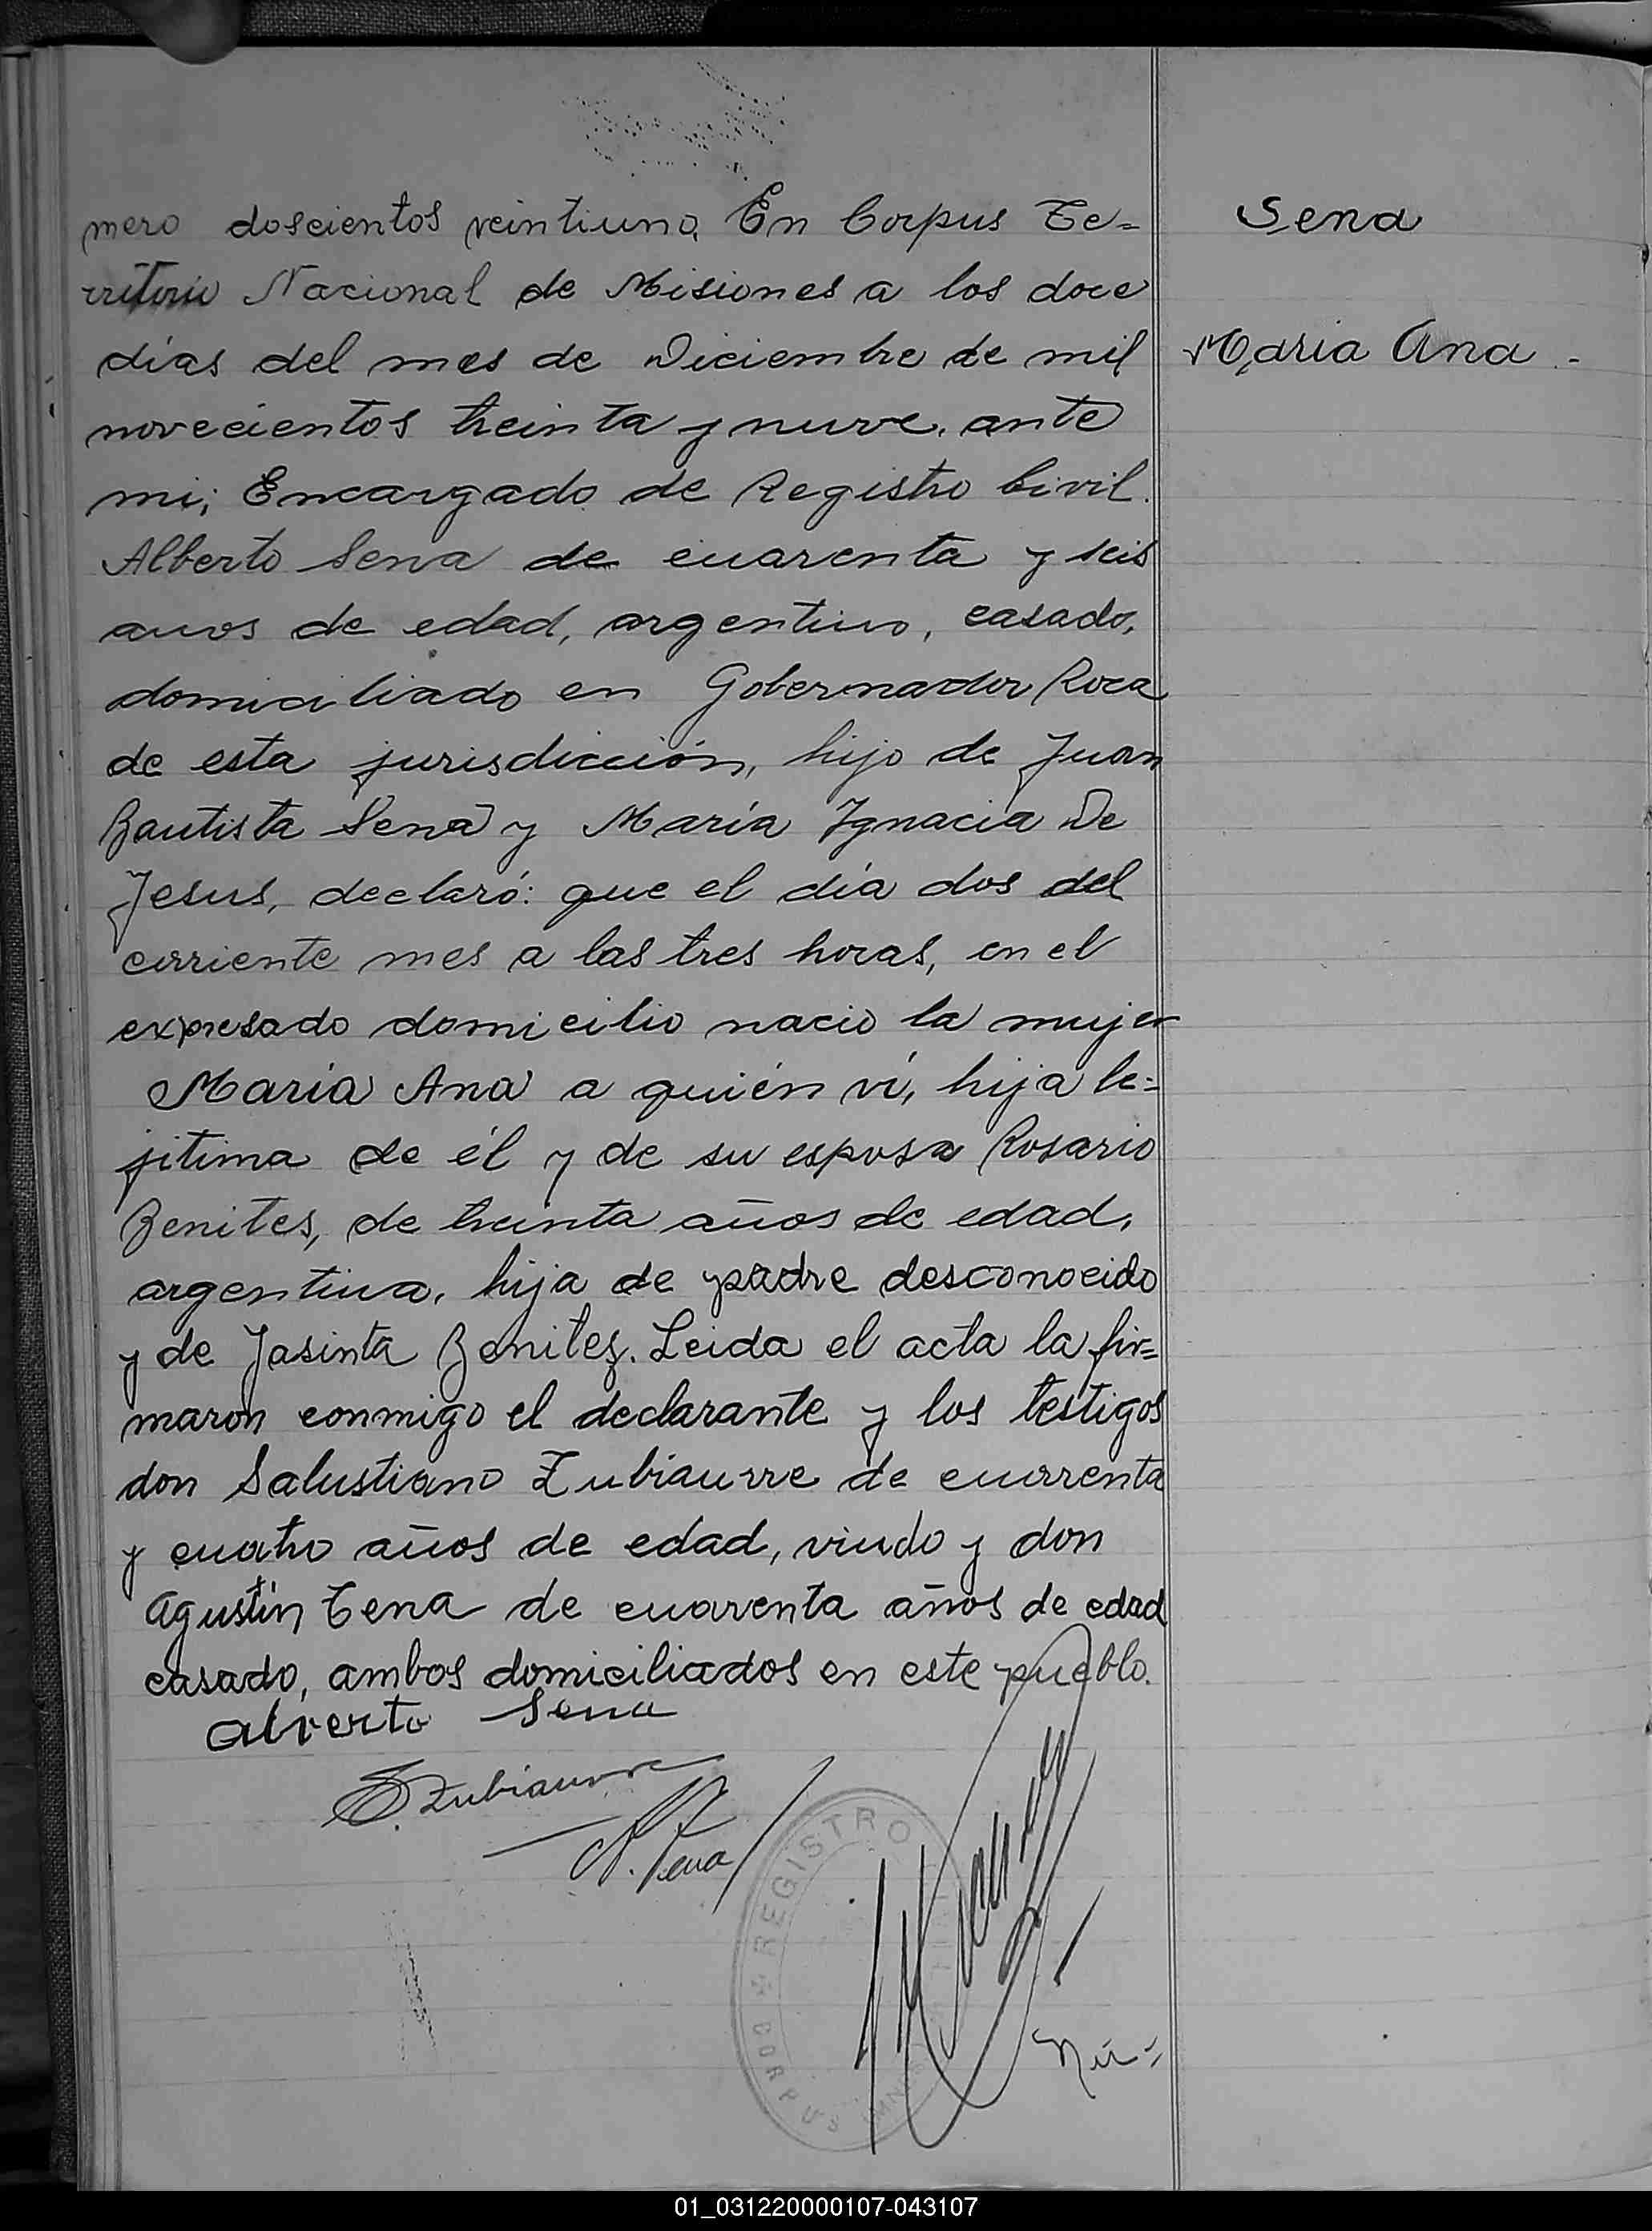 mero doscientos veintiuno, En Corpus Te=
rritorio Nacional de Misiones a los doce
días del mes de Diciembre de mil
novecientos treinta y nueve, ante
mi; Encargado de Registro Civil.
Alberto Sena de cuarenta y seis
anos de edad, argentino, casado,
domiciliado en Gobernador Roca
de esta jurisdicción, hijo de Juan
Bautista Sena y María Ignacia De
Jesus, declaró: que el día dos del
corriente mes a las tres horas, en el
expresado domicilio nacio la mujer
María Ana a quién ví, hija le=
jitima de él y de su esposa Rosario
Benites, de treinta años de edad,
argentina, hija de padre desconocido
y de Jasinta Benitez. Leida el acta la fir=
maron conmigo el declarante y los testigos
don Salustiano Zubiaurre de cuarenta
y cuatro años de edad, viudo y don
Agustín Tena de cuarenta años de edad
casado, ambos domiciliados en este pueblo.
Alverto Sena
S. Zubiaurre
A. Tena
REGISTRO
CORPUS
Nú=
Sena
Maria Ana -
01_031220000107-043107